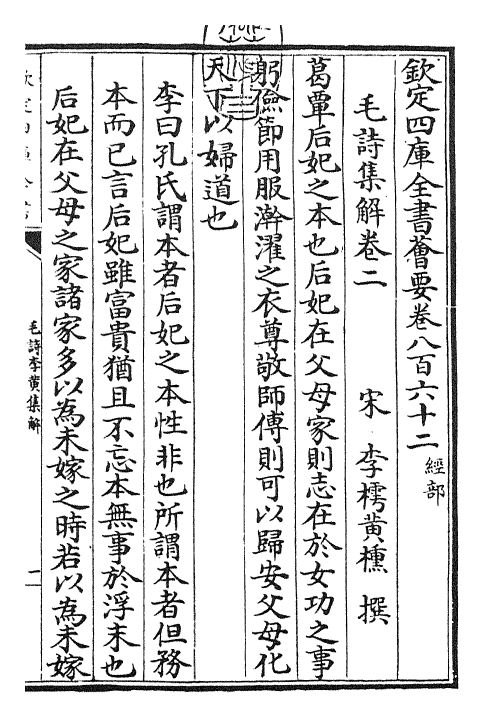 欽定四庫全書薈要卷八百六十二 經部
毛詩集解卷二 宋 李樗黃櫄 撰
葛覃后妃之本也后妃在父母家則志在於女功之事
躬儉節用服澣濯之衣尊敬師傅則可以歸安父母化
天下以婦道也
李曰孔氏謂本者后妃之本性非也所謂本者但務
本而已言后妃雖富貴猶且不忘本無事於浮末也
后妃在父母之家諸家多以為未嫁之時若以為未嫁
欽定四庫全書
毛詩李黃集解
一